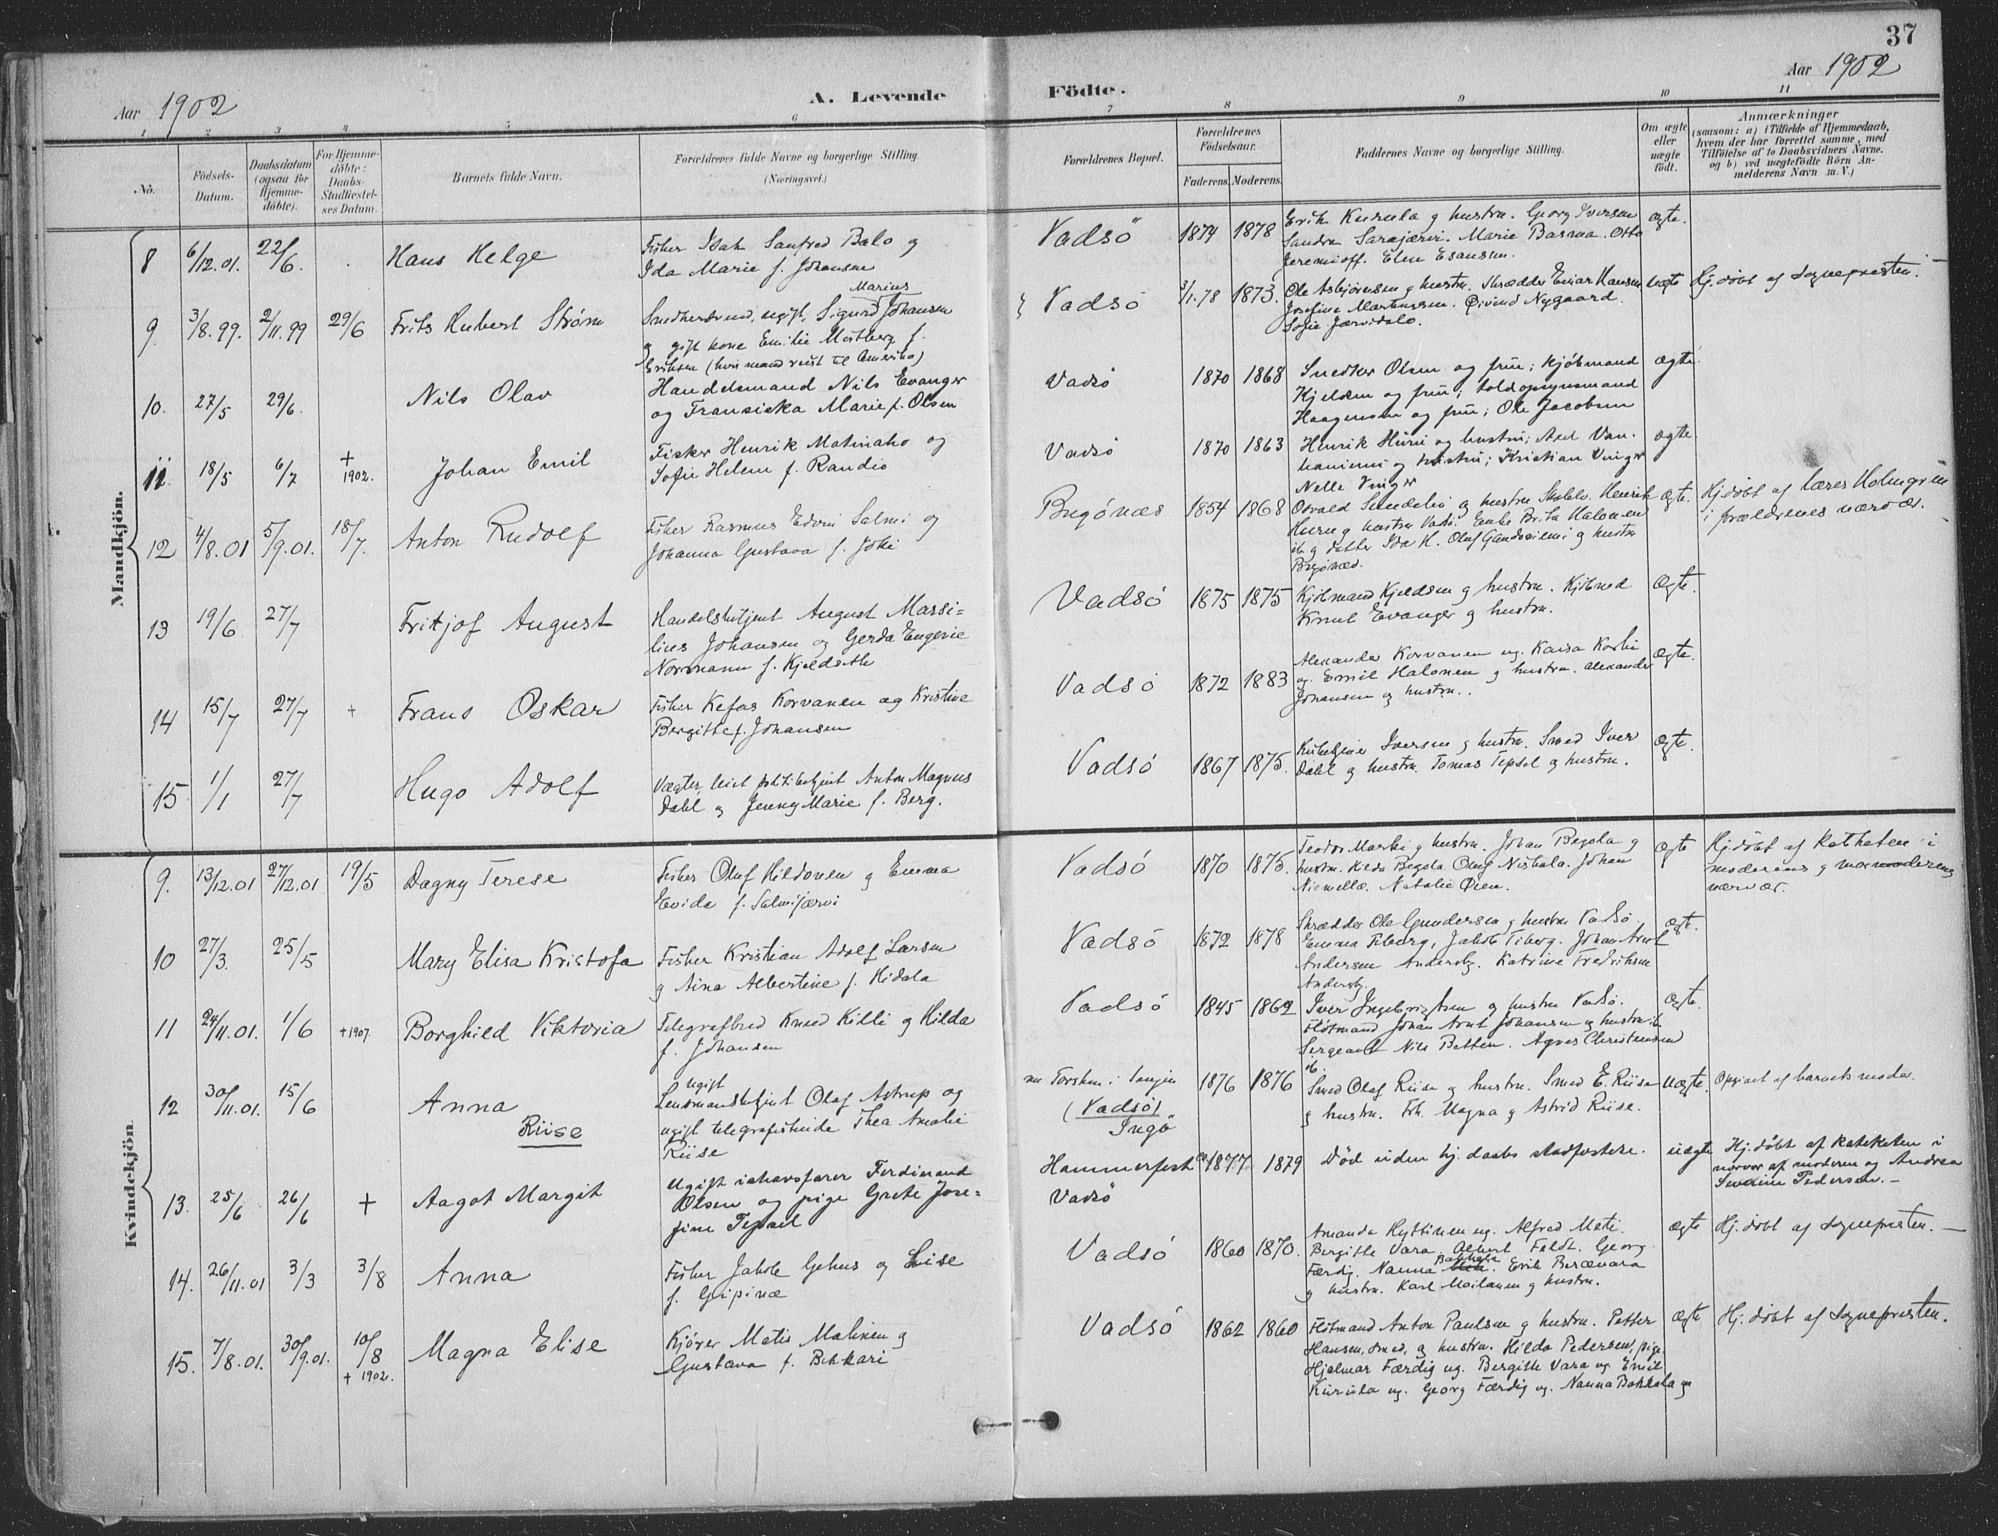 37
Aar 1902
A. Levende Födte.
Aar 1902
1 2 3 4 5 6 7 8 9 10 11
No.
Födsels-
Datum.
Daabsdatum
(ogsaa for
Hjemme-
döbte).
For Hjemme-
döbte:
Daabs-
Stadfæstel-
ses Datum.
Barnets fulde Navn.
Forældrenes fulde Navne og borgerlige Stilling.
(Næringsvei.)
Forældrenes Bopæl.
Forældrenes
Födselsaar.
Faderens. Moderens.
Faddernes Navne og borgerlige Stilling.
Om ægte
eller
uægte
födt.
Anmærkninger
(saasom: a) i Tilfælde af Hjemmedaab,
hvem der har forrettet samme, med
Tilföielse af to Daabsvidners Navne,
og b) ved uægtefödte Börn An-
melderens Navn m. V.)
Mandkjön.
8 6/12.01. 22/6. Hans Helge
Fisker Isak Sanfred Balo g
Ida Marie f. Johansen
Vadsö 1874 1878
Erik g hustru. Georg Iversen
Sandra Sarajærvi. Marie Basma. Otto
Jeremioff. Elen Esansen.
ægte.
9. 3/8.99. 2/11.99 29/6 Frits Hubert Strøm
Marius
Smedsvend, ugift, Sigurd Johansen
g gift kone Emilie Mostberg f.
Eriksen (hvis mand reist til Amerika)
Vadsö 3/1.78 1873.
Ole Asbjørnsen g hustru. Skrædder Einar Hansen
Josefine Martensen. Øivind Nygaard.
Sofie Jærvidalo.
uægte Hj. döbt af Sognepresten.
10. 27/5 29/6. Nils Olav
Handelsmand Nils Evanger
og Fransiska Marie f. Olsen
Vadsö 1870 1868
Snedker Olsen og frue; kjøbmand
Kjeldsen og frue; toldopsynsmand
Haagensen og frue; Ole Jacobsen
ægte
11. 18/5 6/7 + 1902. Johan Emil
Fisker Henrik Matinaho og
Sofie Helene f. Randio
Vadsö 1870 1863
Henrik Huru og hustru; Axel Van-
haniemi og hustru; Kristian Vinger
Nelle Vinger
ægte
12 4/8.01 5/9.01. 18/7. Anton Rudolf
Fisker Rasmus Edvin Salmi og
Johanna Gustava f. Joki
Bugönæs 1854 1868
Osvald g hustru Henrik
Huru g hustru Vadsö. Enke Brita Halonen
ib g datter Ida H. Oluf g hustru
Bugönæs.
ægte. Hj. döbt af lærer Holmgren
i forældrenes nærvær.
13 19/6 27/7 Fritjof August
Handelsbetjent August Marsi-
lius Johansen og Gerda Eugenie
Normann f. Kjeldseth
Vadsö 1875 1875
Kjöbmand Kjeldsen g hustru. Kjöbmd
Knut Evanger g hustru.
Ægte.
14 15/7 27/7 + Frans Oskar
Fisker Kefas Korvanen og Kristine
Bergitte f. Johansen
Vadsö 1872 1883
Alexander Korvanen ug. Kaisa
og. Emil Halonen g hustru. Alexander
Johansen og hustru.
ægte.
15 1/1 27/7 Hugo Adolf
Vægter, politibetjent Anton Magnus
Dahl og Jenny Marie f. Berg.
Vadsö 1867 1875.
Iversen g hustru. Smed Iver
Dahl og hustru. Tomas Tepsel og hustru.
ægte.
Kvindekjön.
9. 13/12.01 27/12.01 19/5 Dagny Terese
Fisker Oluf Hildonen g Emma
Evida f. Salmijærvi
Vadsö 1870 1875.
Teodor Marki g hustru. Johan Begola g
hustru. Hilda Begola. Oluf Niskala. Johan
Niemelæ. Natalie Øien.
ægte Hj. döbt af katheten i
moderens g mormoderens
nærvær.
10 27/3. 25/5 Mary Elisa Kristofa
Fisker Kristian Adolf Larsen
g Aina Albertine f. Hidala
Vadsö 1872 1878
Skrædder Ole Gundersen g hustru Vadsö.
Emma Tiberg, Jakob Tiberg. Johan Arnt
Andersen Andersby. Katrine Fredriksen
Andersby.
ægte.
11 24/11.01. 1/6 +1907. Borghild Viktoria
Telegrafbud Knud Killi g Hilda
f. Johansen
Vadsö 1845 1862
Iver Ingebrigtsen g hustru Vadsö.
Flötmand Johan Arnt Johansen g hustru ib.
Sergeant Nils Betten. Agnes Christensen
ib.
ægte.
12 30/11.01. 15/6 Anna
Riise
ugift
Lensmansbetjent Olaf Astrup og
ugift telegrafistinde Thea Amalie
Riise
nu Torsken i Senjen
(Vadsö)
Ingö
1876 1876
Smed Olaf Riise g hustru. Smed E. Riise
g hustru. Frk. Magna g Astrid Riise.
uægte. Opgivet af barnets moder.
13. 25/6 26/6 + Aagot Margit
Ugift ishavsfarer Ferdinand
Olsen og pige Grete Jose-
fine Tepsel
Hammerfest
Vadsö
1877 1879
Död uden hj. daabs stadfæstelse.
uægte Hj. döbt af kateketen i
nærvær af moderen og Andrea
Severine Pedersen. -
14. 26/11.01 3/3 3/8 Anna
Fisker Jakob Gehus og Lise
f. Gripinæ
Vadsö 1860 1870.
Amanda Kyttinen ug. Alfred Mati.
Bergitte Vara. Albert Feldt. Georg
Færdig. Nanna Bakkala. Erik Beravara
g hustru. Karl Mailanen g hustru.
ægte Hj. döbt af Sognepresten. -
15. 7/8.01. 30/9.01. 10/8 + 1902. Magna Elise
Kjører Matis Malinen g
Gustava f. Bekkari
Vadsö 1862 1860
Flötmand Anton Paulsen g hustru. Petter
Hansen, smed, og hustru. Hilda Pedersen, pige.
Hjalmar Færdig ug. Bergitte Vara ug. Emil
Kurula ug. Georg Færdig ug. Nanna Bakkala ug
ægte Hj. döbt af Sognepresten.